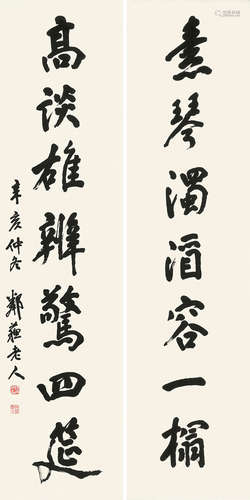 素琴濁酒容一榻
高談雄辨驚四筵
辛亥仲冬 鄰蘇老人